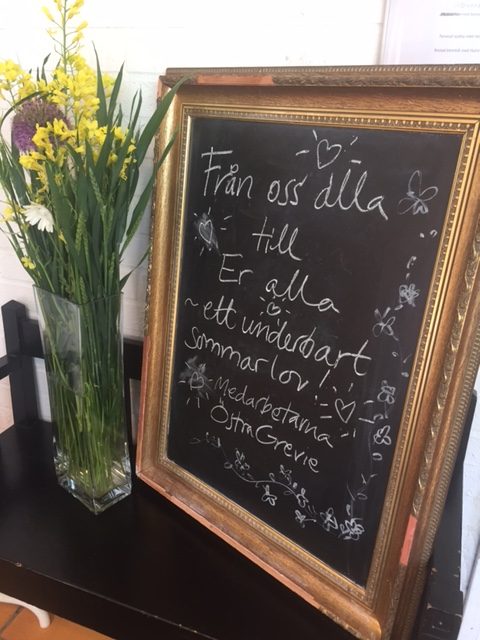 Från oss alla
till
Er alla
~ ett underbart
sommarlov!
Medarbetarna
Östra Grevie